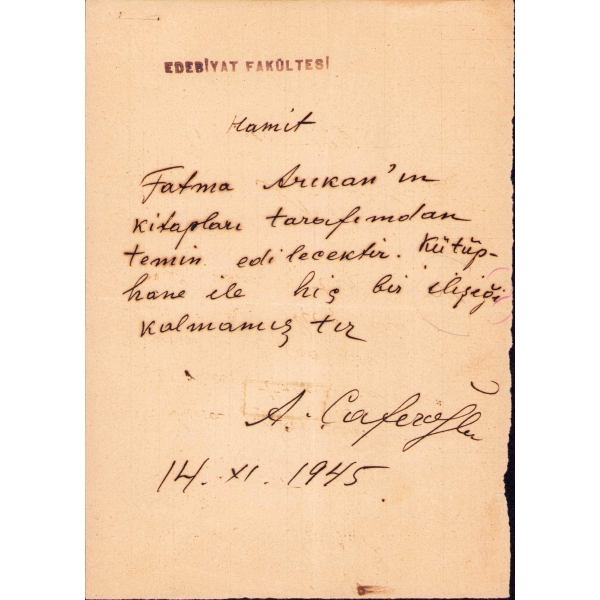 EDEBİYAT FAKÜLTESİ
Hamit
Fatma Arıkan'ın
kitapları tarafımdan
temin edilecektir. Kütüp-
hane ile hiç bir ilişiği
kalmamış tır
A. Caferoğlu
14. XI. 1945